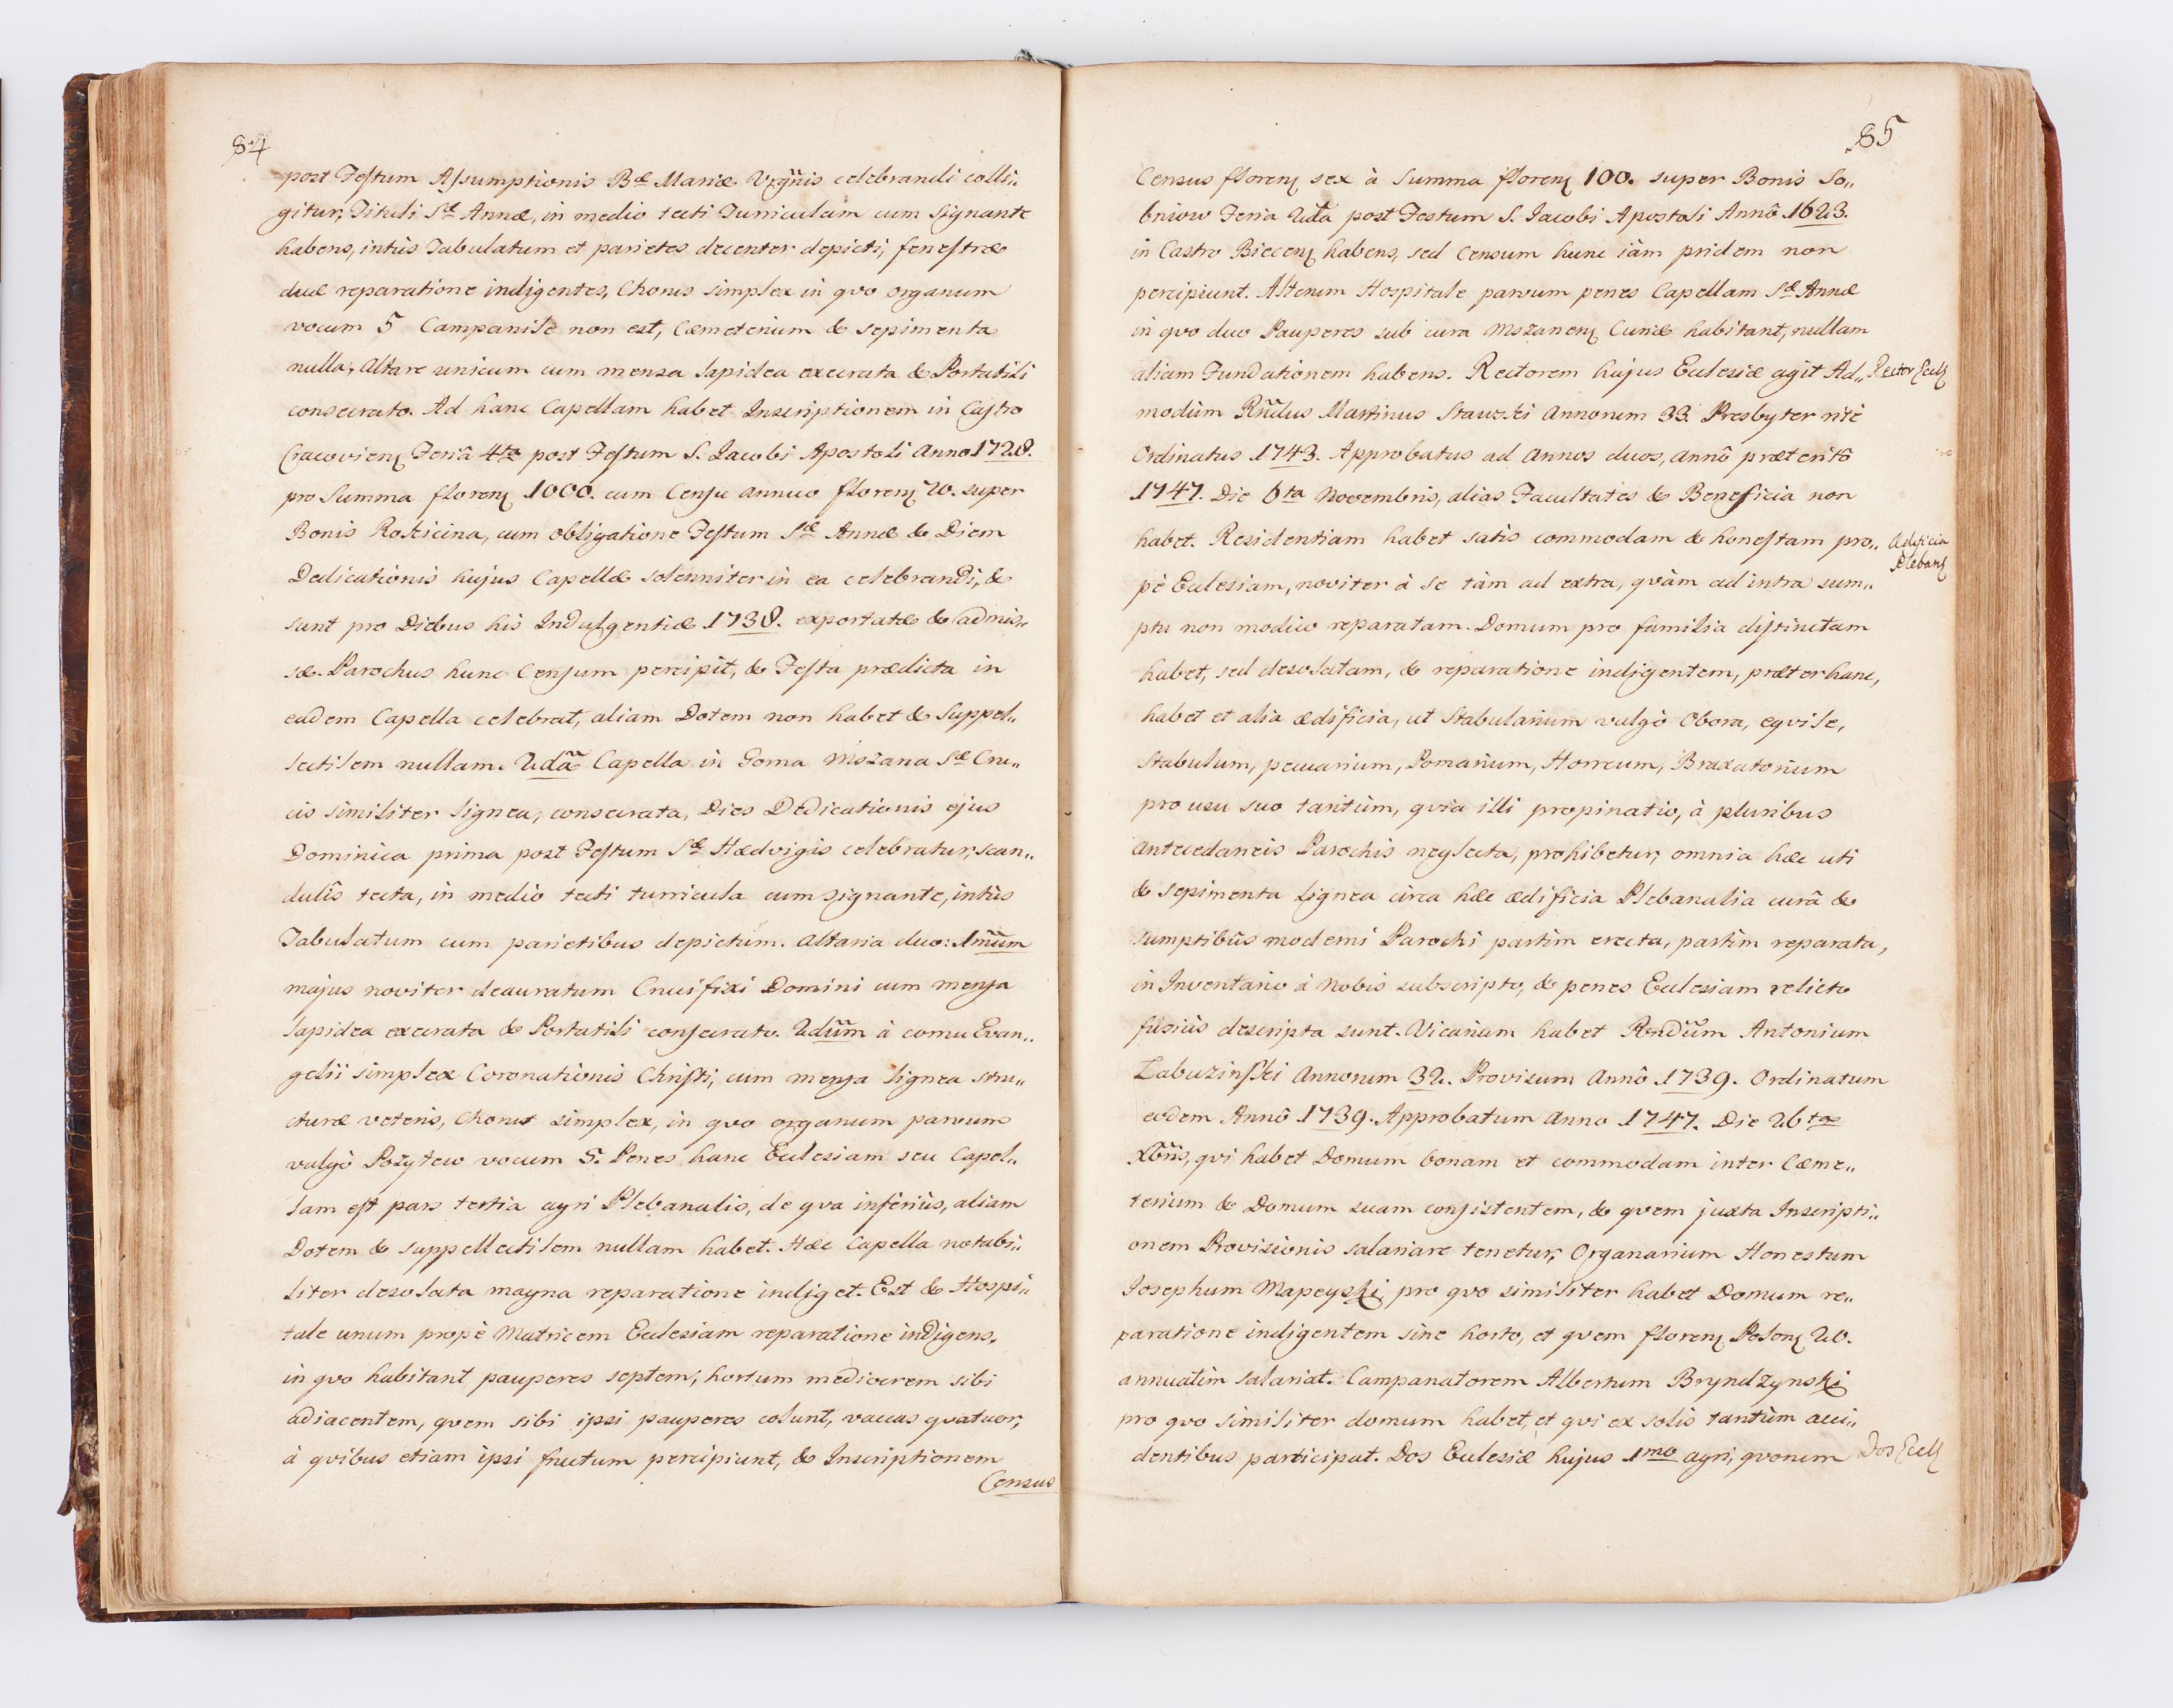 84
post Festum Assumptionis Bæ Mariæ Vrgñis celebrandi colli„
gitur, Tituli Sæ Annæ, in medio tecti Turriculam cum Signante
habens, intùs Tabulatum et parietes decenter depicti, fenestræ
duæ reparatione indigentes, Chorus simplex in qvo organum
vocum 5 Campanile non est, Cæmeterium & sepimenta
nulla, Altare unicum cum mensa lapidea execrata & Portatili
consecrato. Ad hanc Capellam habet Inscriptionem in Castro
Cracovien. Feriâ 4ta post Festum S. Jacobi Apostoli Anno 1728.
pro Summa floren. 1000. cum Censu annuo floren. 70. super
Bonis Rosticina, cum obligatione Festum Sæ Annæ & Diem
Dedicationis hujus Capellæ solenniter in ea celebrandi, &
sunt pro Diebus his Indulgentiæ 1738. exportatæ & admis„
sæ. Parochus hunc Censum percipit, & Festa prædicta in
eadem Capella celebrat, aliam Dotem non habet & Suppel„
lectilem nullam. 2dã Capella in Gorna Mszana Sæ Cru„
cis similiter lignea, consecrata, Dies Dedicationis ejus
Dominica prima post Festum Sæ Hædvigis celebratur, scan„
dulis tecta, in medio tecti turricula cum signante, intùs
Tabulatum cum parietibus depictum. Altaria duo: 1mũm
majus noviter deauratum Crucifixi Domini cum mensa
lapidea execrata & Portatili consecrato. 2dũm à cornu Evan„
gelii simplex Coronationis Christi, cum mensa lignea stru„
cturæ veteris, Chorus simplex, in qvo organum parvum
vulgò Pozytew vocum 5. Penes hanc Ecclesiam seu Capel„
lam est pars tertia agri Plebanalis, de qva inferiùs, aliam
Dotem & suppellectilem nullam habet. Hæc Capella notabi„
liter desolata magna reparatione indiget. Est & Hospi„
tale unum propè Matricem Ecclesiam reparatione indigens,
in qvo habitant pauperes septem, hortum mediocrem sibi
adiacentem, qvem sibi ipsi pauperes colunt, vaccas qvatuor,
à qvibus etiam ipsi fructum percipiunt, & Inscriptionem
Census
85
Census floren. sex à Summa floren. 100. super Bonis So„
bniow Feria 2da post Festum S. Jacobi Apostoli Annô 1623.
in Castro Biecen. habens, sed Censum hunc iàm pridem non
percipiunt. Alterum Hospitale parvum penes Capellam Sæ Annæ
in qvo duo Pauperes sub cura Mszanen. Curiæ habitant, nullam
aliam Fundationem habens. Rectorem hujus Ecclesiæ agit Ad„
Rector Eccl.
modùm Rñdus Martinus Stawski Annorum 33. Presbyter ritè
Ordinatus 1743. Approbatus ad Annos duos, annô præteritô
1747. Die 6ta Novembris, alias Facultates & Beneficia non
habet. Residentiam habet satis commodam & honestam pro„
Ædificia
Pleban.
pè Ecclesiam, noviter à se tàm ad extra, qvàm ad intra sum„
ptu non modico reparatam. Domum pro familia distinctam
habet, sed desolatam, & reparatione indigentem, præter hanc,
habet et alia ædificia, ut Stabularium vulgò Obora, eqvile,
Stabulum, pecuarium, Pomarium, Horreum, Braxatorium
pro usu suo tantùm, qvia illi propinatio, à pluribus
antecedaneis Parochis neglecta, prohibetur, omnia hæc uti
& sepimenta lignea circa hæc ædificia Plebanalia curâ &
sumptibûs moderni Parochi partìm erecta, partìm reparata,
in Inventario à Nobis subscripto, & penes Ecclesiam relicto
fusiùs descripta sunt. Vicarium habet Rndũm Antonium
Labuzinski Annorum 32. Provisum Annô 1739. Ordinatum
eodem Annô 1739. Approbatum Anno 1747. Die 26tæ
Xbris, qvi habet Domum bonam et commodam inter Cæme„
terium & Domum suam consistentem, & qvem juxta Inscripti„
onem Provisionis salariare tenetur, Organarium Honestum
Josephum Mapeyski, pro qvo similiter habet Domum re„
paratione indigentem sine horto, et qvem floren. Polon. 20.
annuatìm salariat. Campanatorem Albertum Bryndzynski
pro qvo similiter domum habet, et qvi ex solis tantùm acci„
dentibus participat. Dos Ecclesiæ hujus 1mo agri, qvorum
Dos Eccl.